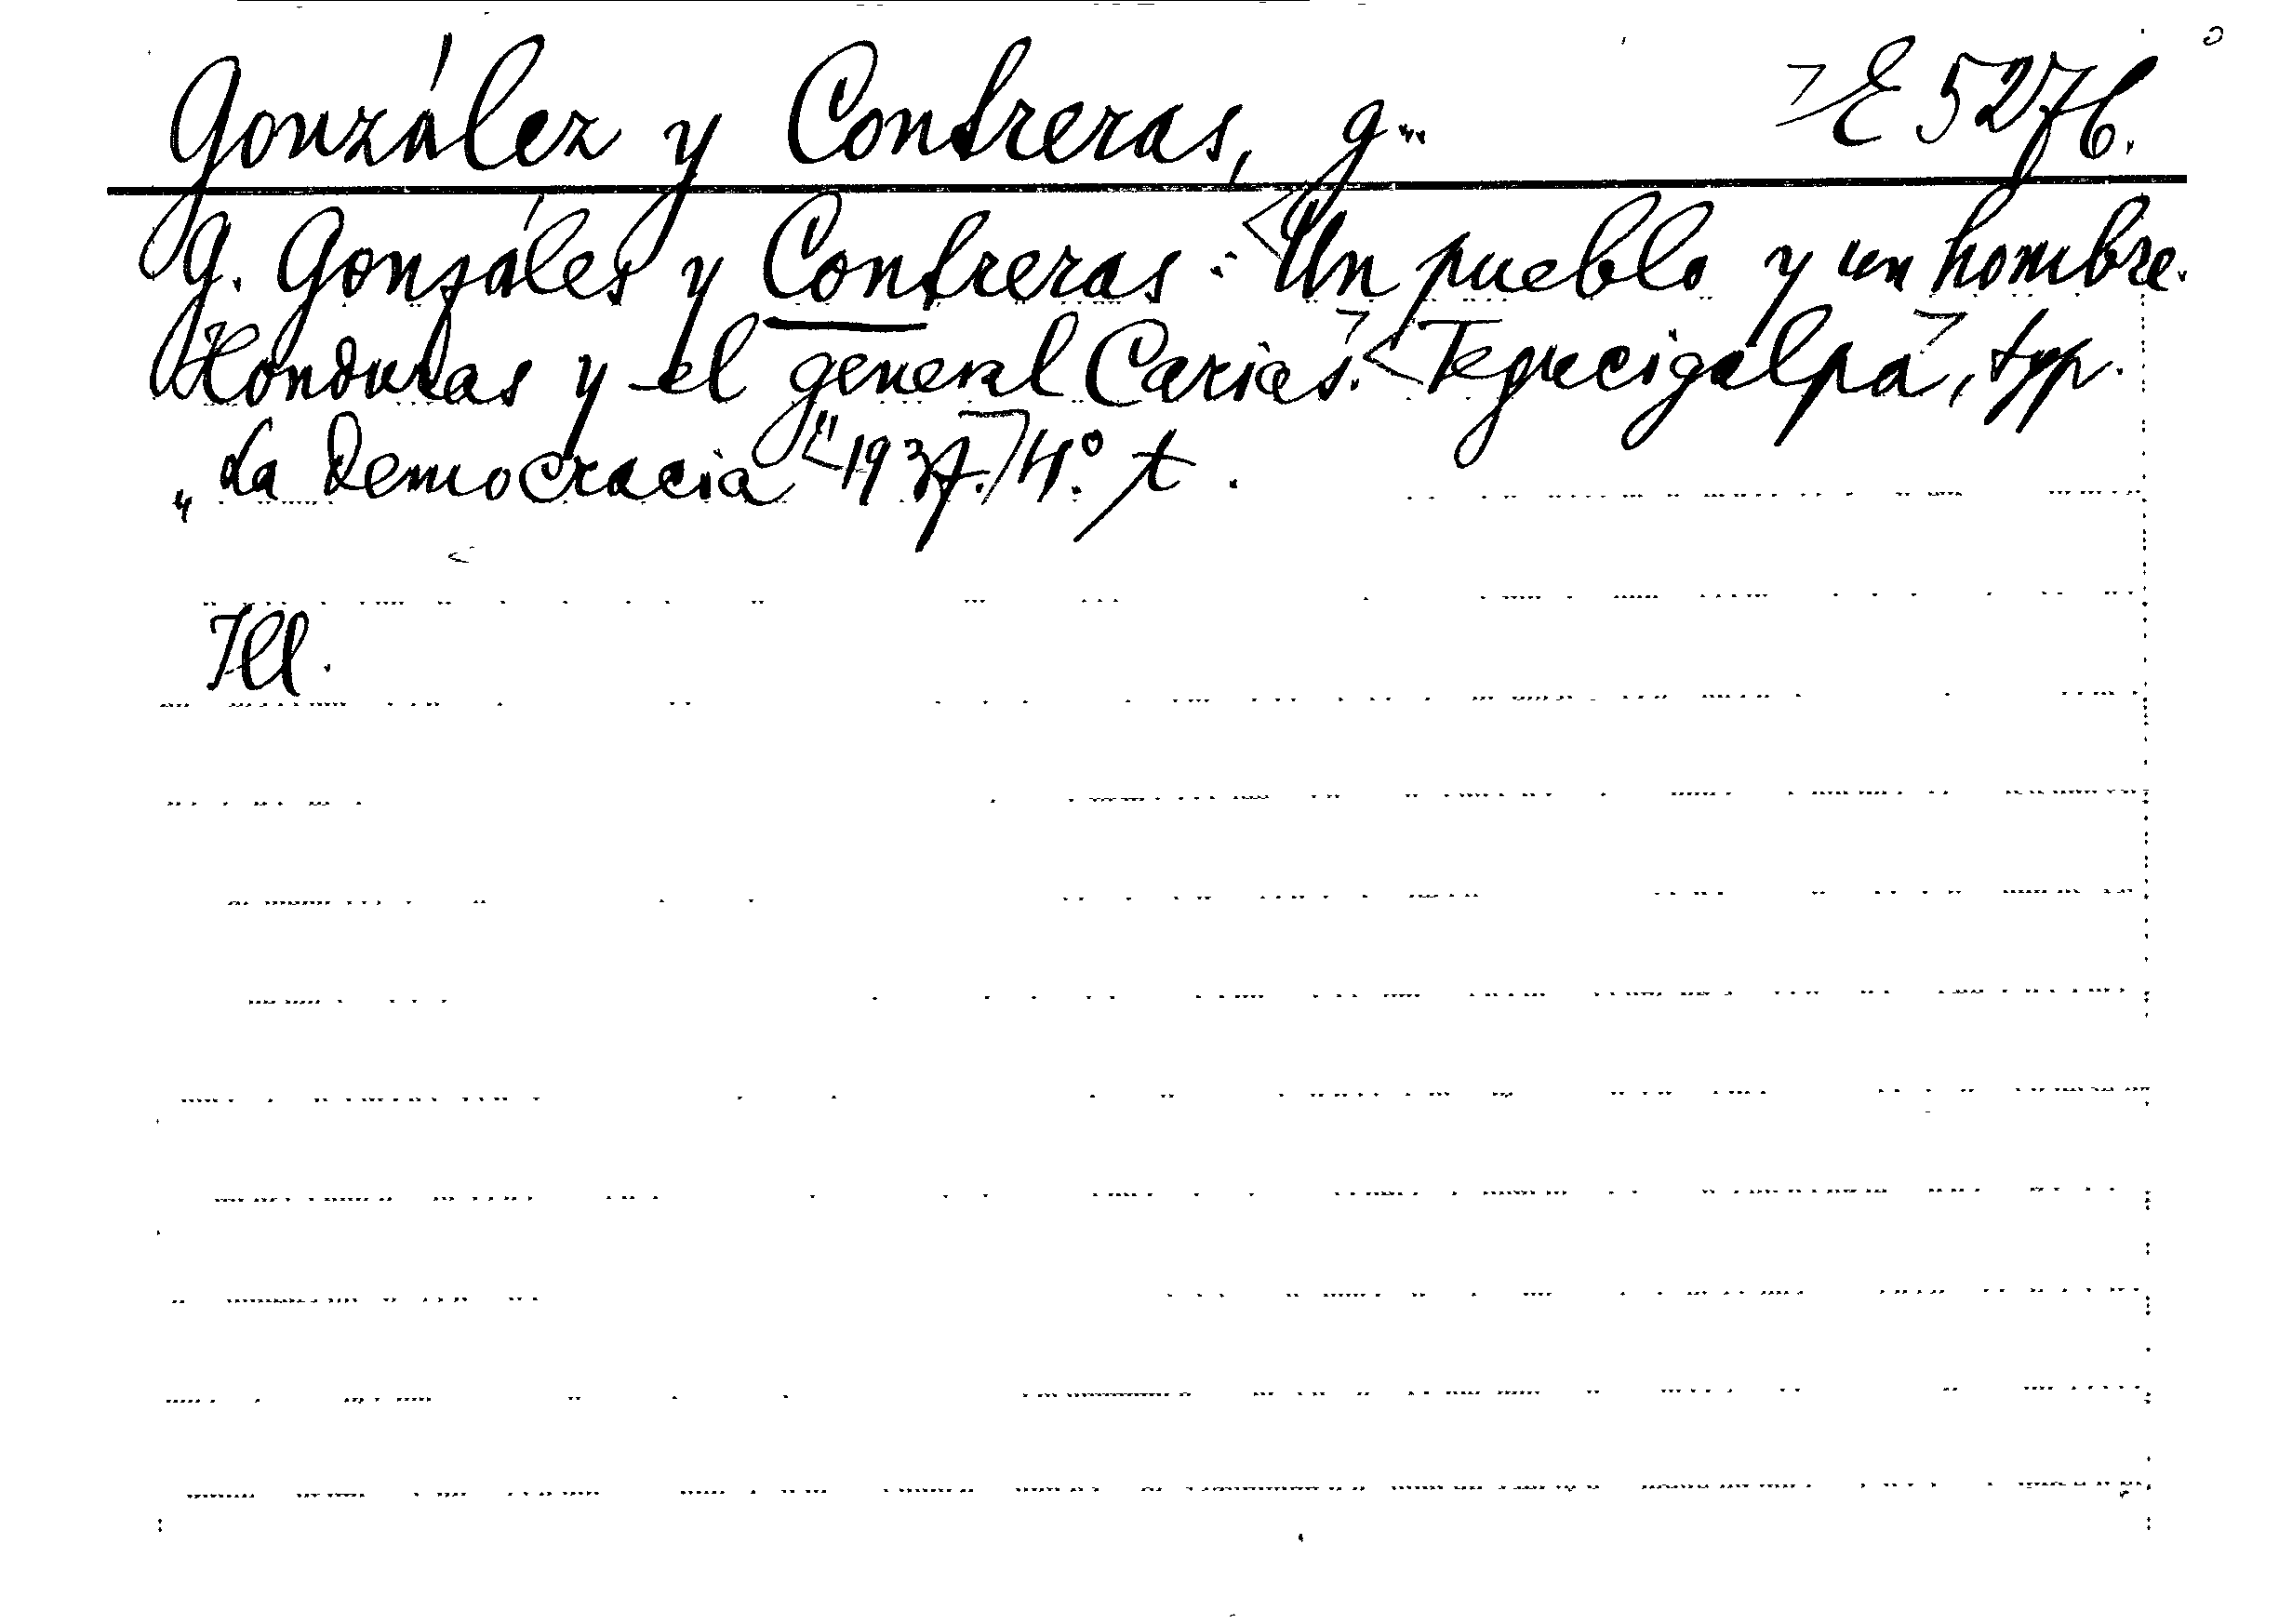 González y Contreras, G...  E 5276.
G. Gonzáles y Contreras: Un pueblo y un hombre.
Honduras y el general Carías. Tegucigalpa, typ.
„La Democracia" 1937. 4:° t.
Ill.